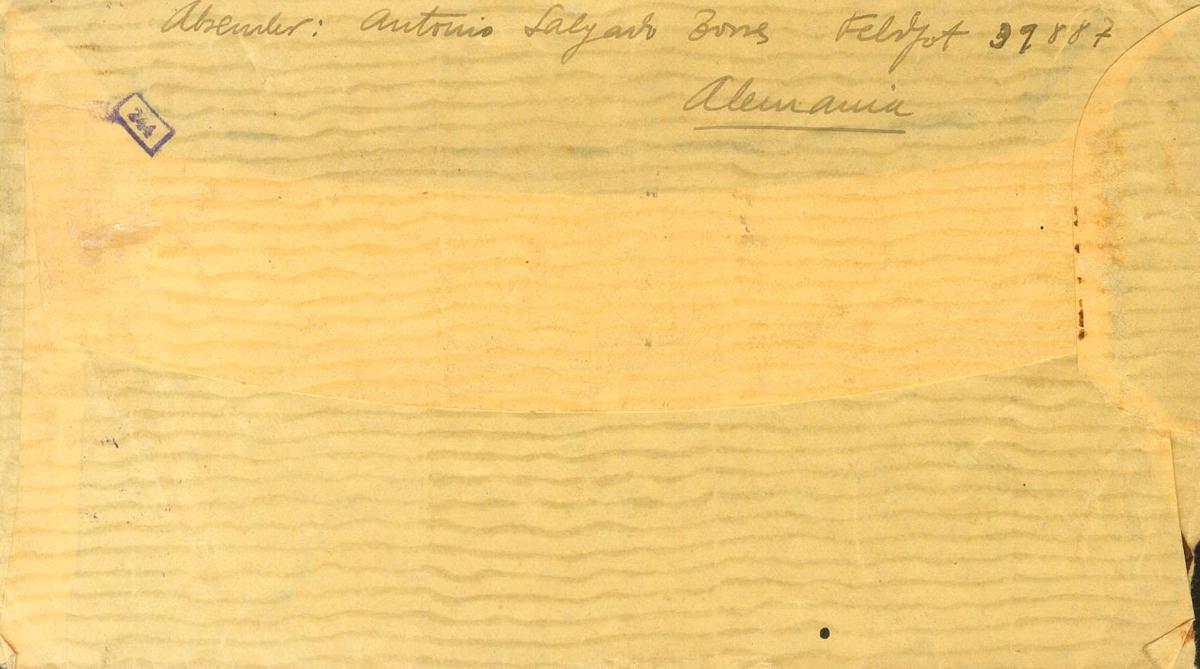 Absender: Antonio Salgado Bores Feldpot 39887
Alemania
244